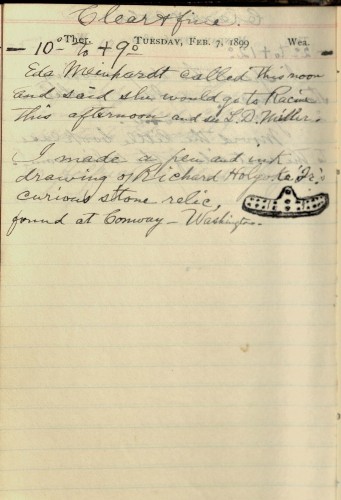 Clear & fine
Ther. TUESDAY, FEB. 7, 1899 Wea.
-10° to +9°
Eda Meinhardt called this noon
and said she would go to Racine
this afternoon and see L.D. Miller.
I made a pen and ink
drawing of Richard Holyoke, Jr.'s
curious stone relic,
found at Conway - Washington.